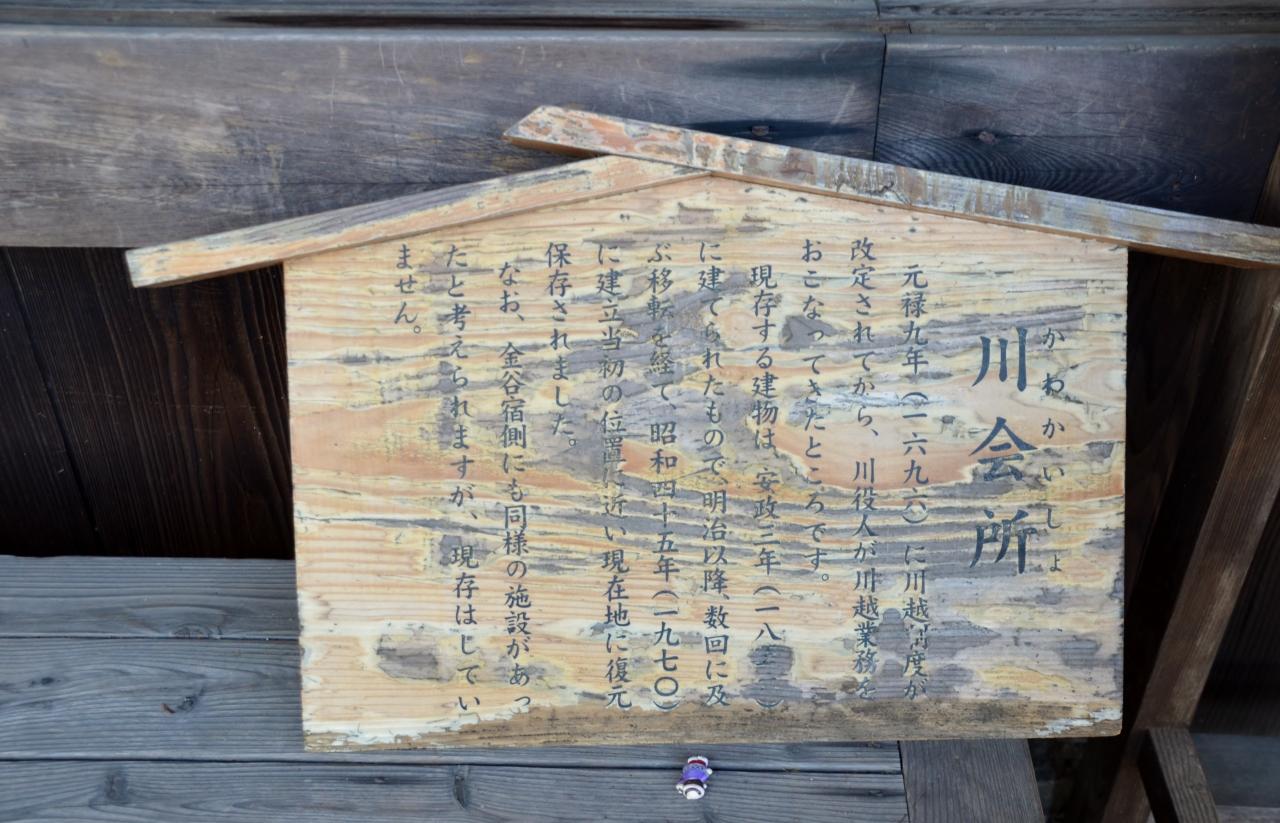 かわかいしょ
川会所
元禄九年(一六九六)に川越制度が
改定されてから、川役人が川越業務を
おこなってきたところです。
現存する建物は、安政三年(一八
に建てられたもので、明治以降、数回に及
ぶ移転を経て、昭和四十五年(一九七〇)
に建立当初の位置に近い現在地に復元
保存されました。
なお、金谷宿側にも同様の施設があっ
たと考えられますが、現存はしてい
ません。